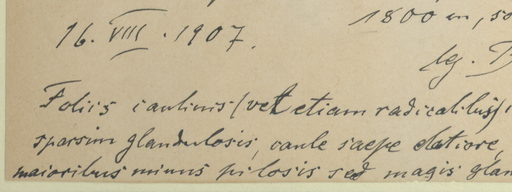 1800 m, so
16. VIII. 1907.
lg.
Foliis caulinis (vel etiam radicalibus)
sparsim glandulosis, caule saepe elatiore,
maioribus minus pilosis sed magis glan